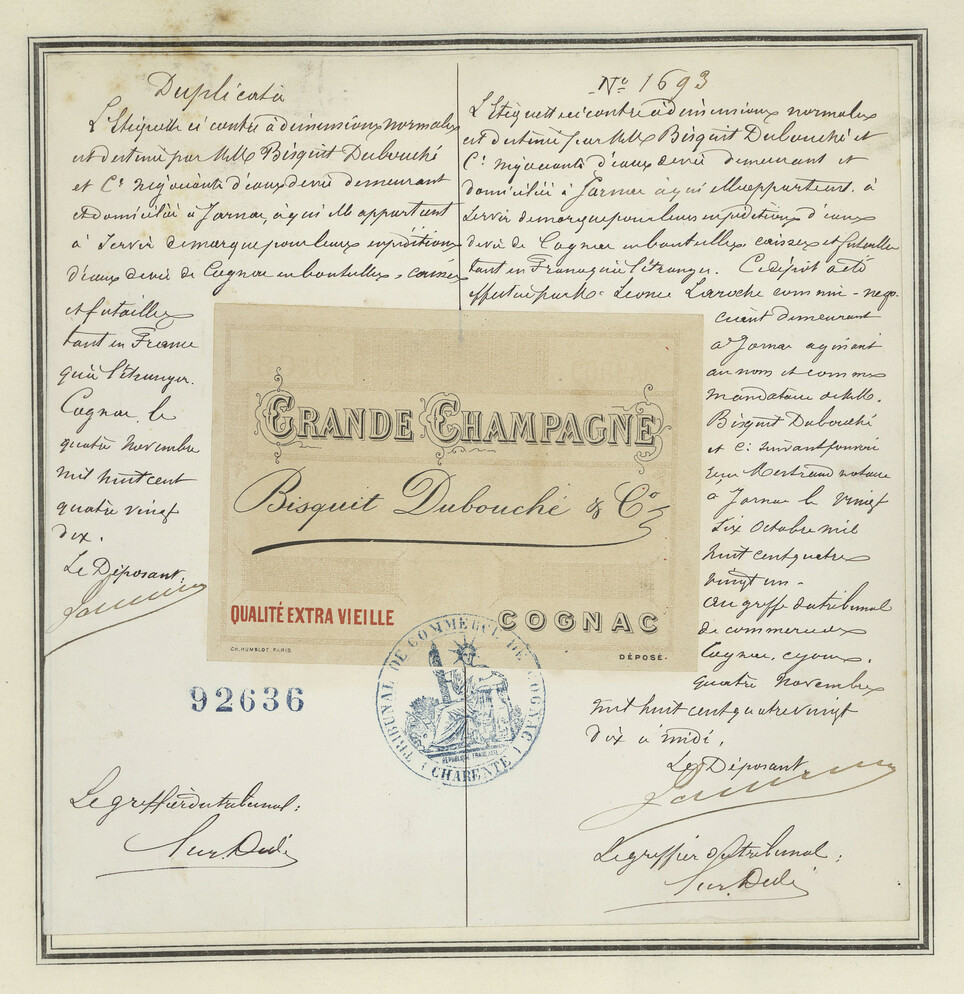 Duplicata
L'Etiquette ci contre à dimensions normales
est destinée par MM. Bisquit Dubouché
et Cie négociants d'eaux de vie demeurant
et domiciliés à Jarnac, à qui elle appartient
à servir de marque pour leurs expéditions
d'eaux de vie de Cognac en bouteilles, caisses
et futailles
tant en France
qu'à l'étranger.
Cognac le
quatre Novembre
mil huit cent
quatre vingt
dix.
Le Déposant:
Le greffier du tribunal:
No 1693
L'Etiquette ci contre à dimensions normales
est destinée par MM. Bisquit Dubouché et
Cie négociants d'eaux de vie demeurant et
domiciliés à Jarnac à qui elle appartient. à
servir de marque pour leurs expéditions d'eaux
de vie de Cognac en bouteilles caisses et futailles
tant en France qu'à l'étranger. Ce dépôt a été
effectué par Mr Léonce Laroche commis-négo-
ciant demeurant
à Jarnac agissant
au nom et comme
mandataire de MM.
Bisquit Dubouché
et Cie suivant pouvoir
notaire
à Jarnac le vingt
six Octobre mil
huit cent quatre
vingt un -
au greffe du tribunal
de commerce de
Cognac, ce jour.
quatre Novembre
mil huit cent quatre vingt
dix à midi.
Le Déposant
Le greffier du tribunal:
GRANDE CHAMPAGNE
Bisquit Dubouché & Co
QUALITÉ EXTRA VIEILLE
COGNAC
CH. HUMBLOT, PARIS
DÉPOSÉ.
92636
TRIBUNAL DE COMMERCE DE COGNAC
RÉPUBLIQUE FRANÇAISE
(CHARENTE)